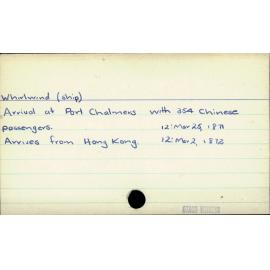 Whirlwind (ship)
Arrival at Port Chalmers with 354 Chinese
passengers. 12: Mar 25, 1871
Arrives from Hong Kong. 12: Mar 2, 1872